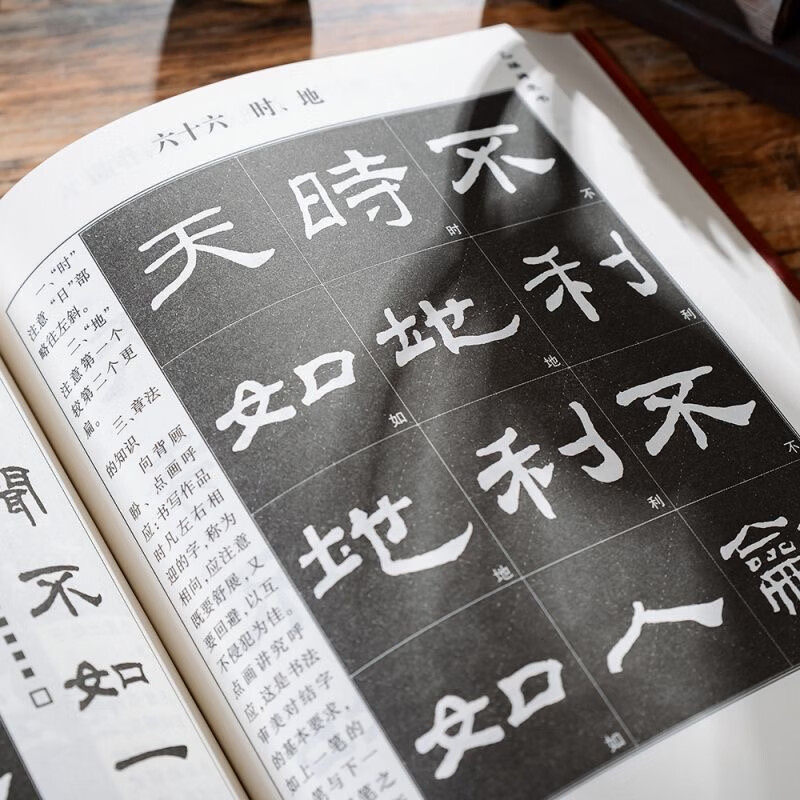 六十六 时、地
天時不
时 不
如地利
如 地 利
地利不
地 利 不
如人
如
一、“时”
注意“日”部
略往左斜。
二、“地”
注意第一个
较第二个更
扁。
三、章法
的知识
向背顾
盼、点画呼
应：书写作品
时凡左右相
迎的字，称为
相向，应注意
既要舒展，又
要回避，以互
不侵犯为佳。
点画讲究呼
应，这是书法
审美对结字
的基本要求，
如上一笔的
笔与下一
笔之
聞
不
如
一